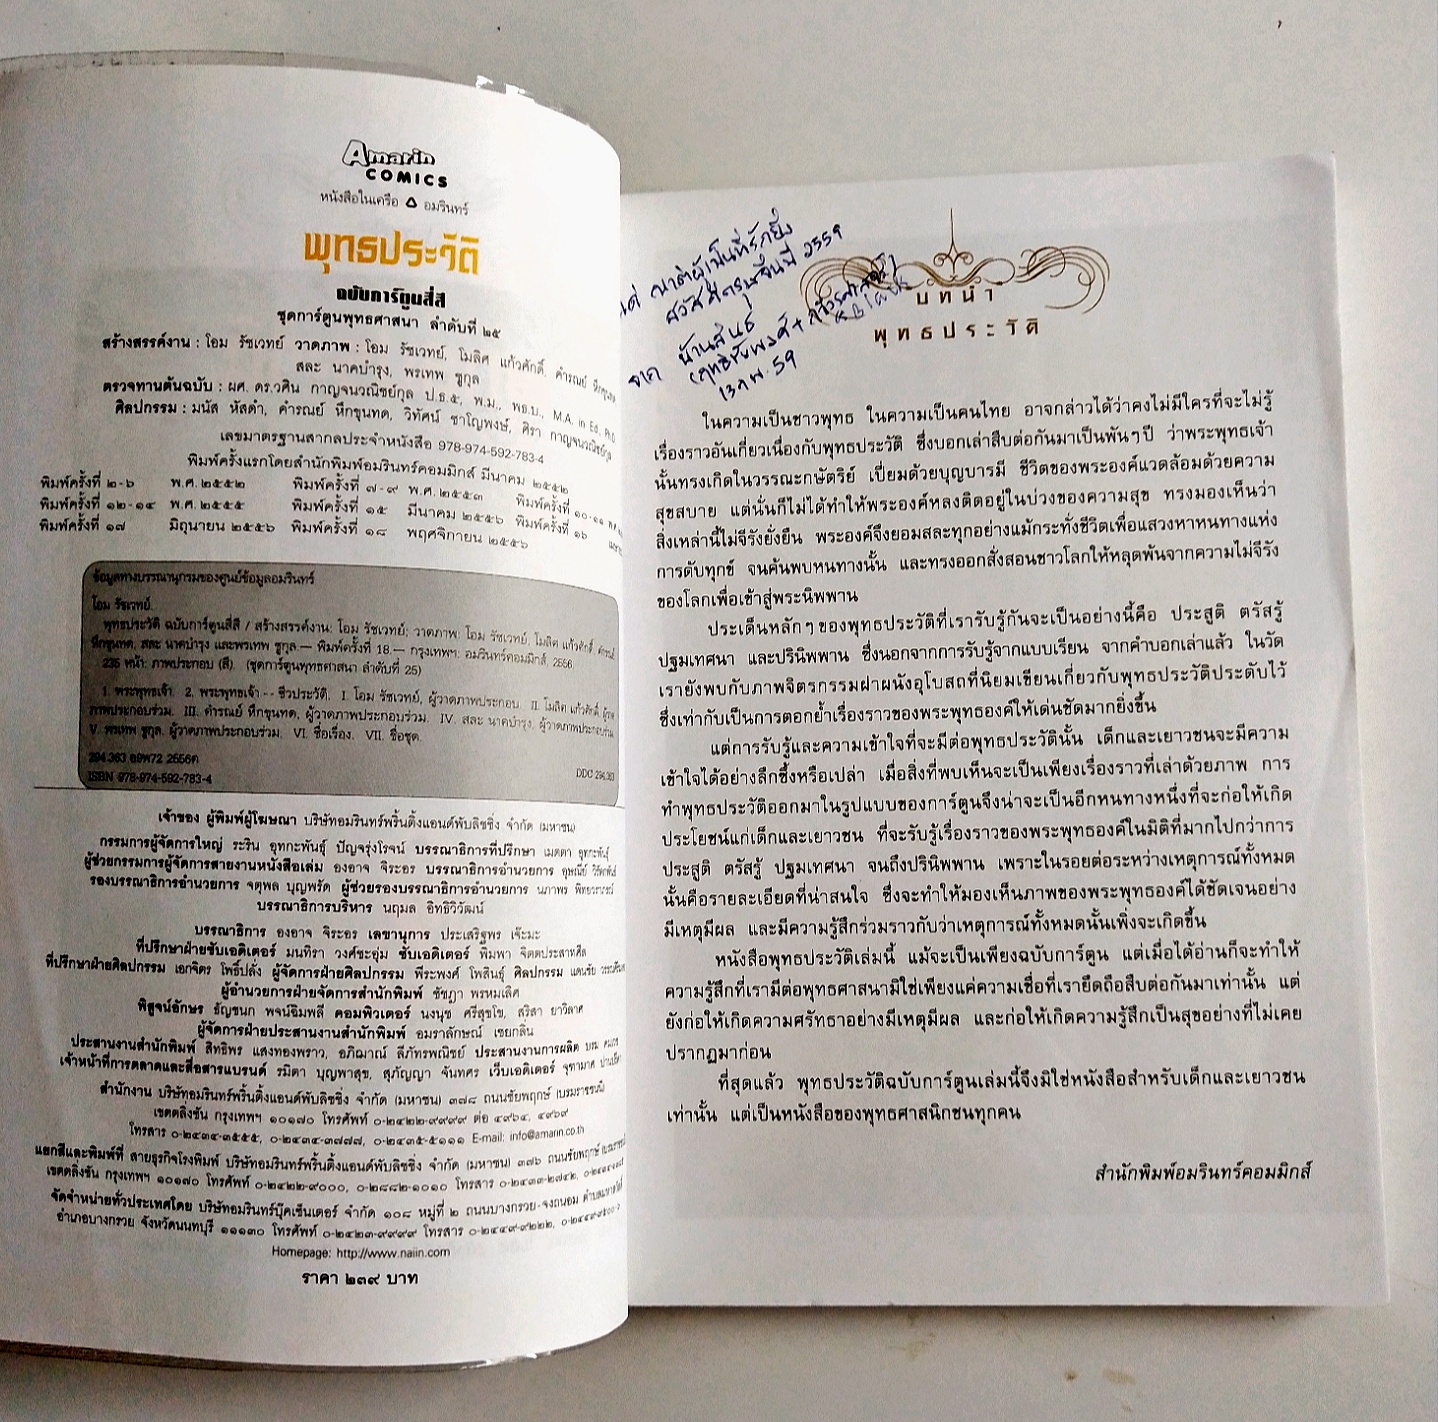 Amarin
COMICS
หนังสือในเครือ อมรินทร์
พุทธประวัติ
ฉบับการ์ตูนสี่สี
ชุดการ์ตูนพุทธศาสนา ลำดับที่ ๒๕
สร้างสรรค์งาน : โอม รัชเวทย์ วาดภาพ : โอม รัชเวทย์, โมลิศ แก้วศักดิ์, คำรณย์ หึกขุนทด,
สละ นาคบำรุง, พรเทพ ชูกุล
ตรวจทานต้นฉบับ : ผศ. ดร.วศิน กาญจนวณิชย์กุล ป.ธ.๕, พ.ม., พธ.บ., M.A. in Ed., Ph.D.
ศิลปกรรม : มนัส หัสดำ, คำรณย์ หึกขุนทด, วิทัศน์ ชาโญพงษ์, ศิรา กาญจนวณิชย์กุล
เลขมาตรฐานสากลประจำหนังสือ 978-974-592-783-4
พิมพ์ครั้งแรกโดยสำนักพิมพ์อมรินทร์คอมมิกส์ มีนาคม ๒๕๕๒
พิมพ์ครั้งที่ ๒-๖ พ.ศ. ๒๕๕๒ พิมพ์ครั้งที่ ๗-๙ พ.ศ. ๒๕๕๓ พิมพ์ครั้งที่ ๑๐-๑๑
พิมพ์ครั้งที่ ๑๒-๑๔ พ.ศ. ๒๕๕๕ พิมพ์ครั้งที่ ๑๕ มีนาคม ๒๕๕๖ พิมพ์ครั้งที่ ๑๖
พิมพ์ครั้งที่ ๑๗ มิถุนายน ๒๕๕๖ พิมพ์ครั้งที่ ๑๘ พฤศจิกายน ๒๕๕๖
ข้อมูลทางบรรณานุกรมของศูนย์ข้อมูลอมรินทร์
โอม รัชเวทย์.
พุทธประวัติ ฉบับการ์ตูนสี่สี / สร้างสรรค์งาน: โอม รัชเวทย์; วาดภาพ: โอม รัชเวทย์, โมลิศ แก้วศักดิ์, คำรณย์
หึกขุนทด, สละ นาคบำรุง และพรเทพ ชูกุล.— พิมพ์ครั้งที่ 18.— กรุงเทพฯ: อมรินทร์คอมมิกส์, 2556.
235 หน้า: ภาพประกอบ (สี). (ชุดการ์ตูนพุทธศาสนา ลำดับที่ 25)
1. พระพุทธเจ้า. 2. พระพุทธเจ้า -- ชีวประวัติ. I. โอม รัชเวทย์, ผู้วาดภาพประกอบ. II. โมลิศ แก้วศักดิ์,
ภาพประกอบร่วม. III. คำรณย์ หึกขุนทด, ผู้วาดภาพประกอบร่วม. IV. สละ นาคบำรุง, ผู้วาดภาพประกอบร่วม.
V. พรเทพ ชูกุล, ผู้วาดภาพประกอบร่วม. VI. ชื่อเรื่อง. VII. ชื่อชุด.
294.363
ISBN 978-974-592-783-4 DDC 294.363
เจ้าของ ผู้พิมพ์ผู้โฆษณา บริษัทอมรินทร์พริ้นติ้งแอนด์พับลิชชิ่ง จำกัด (มหาชน)
กรรมการผู้จัดการใหญ่ ระริน อุทกะพันธุ์ ปัญจรุ่งโรจน์ บรรณาธิการที่ปรึกษา เมตตา อุทกะพันธุ์
ผู้ช่วยกรรมการผู้จัดการสายงานหนังสือเล่ม องอาจ จิระอร บรรณาธิการอำนวยการ อุษณีย์ วิรัตกพันธ์
รองบรรณาธิการอำนวยการ จตุพล บุญพรัด ผู้ช่วยรองบรรณาธิการอำนวยการ นภาพร
บรรณาธิการบริหาร นฤมล อิทธิวิวัฒน์
บรรณาธิการ องอาจ จิระอร เลขานุการ ประเสริฐพร เจ๊ะมะ
ที่ปรึกษาฝ่ายซับเอดิเตอร์ มนทิรา วงศ์ชะอุ่ม ซับเอดิเตอร์ พิมพา จิตตประสาทศีล
ที่ปรึกษาฝ่ายศิลปกรรม เอกจิตร โพธิ์ปลั่ง ผู้จัดการฝ่ายศิลปกรรม พีระพงศ์ โพสินธุ์ ศิลปกรรม
ผู้อำนวยการฝ่ายจัดการสำนักพิมพ์ ชัชฎา พรหมเลิศ
พิสูจน์อักษร ธัญชนก พจน์ฉิมพลี คอมพิวเตอร์ นงนุช ศรีสุขโข, สุริสา ยาวิลาศ
ผู้จัดการฝ่ายประสานงานสำนักพิมพ์ อมราลักษณ์ เชยกลิ่น
ประสานงานสำนักพิมพ์ สิทธิพร แสงทองพราว, อภิฌาณ์ ลีภัทรพณิชย์ ประสานงานการผลิต
เจ้าหน้าที่การตลาดและสื่อสารแบรนด์ รมิตา บุญพาสุข, สุภัญญา จันทศร เว็บเอดิเตอร์ จุฑามาศ
สำนักงาน บริษัทอมรินทร์พริ้นติ้งแอนด์พับลิชชิ่ง จำกัด (มหาชน) ๓๗๘ ถนนชัยพฤกษ์ (บรมราชชนนี)
เขตตลิ่งชัน กรุงเทพฯ ๑๐๑๗๐ โทรศัพท์ ๐-๒๔๒๒-๙๙๙๙ ต่อ ๔๙๖๔, ๔๙๖๙
โทรสาร ๐-๒๔๓๔-๓๕๕๕, ๐-๒๔๓๔-๓๗๗๗, ๐-๒๔๓๕-๕๑๑๑ E-mail: info@amarin.co.th
แยกสีและพิมพ์ที่ สายธุรกิจโรงพิมพ์ บริษัทอมรินทร์พริ้นติ้งแอนด์พับลิชชิ่ง จำกัด (มหาชน) ๓๗๖ ถนนชัยพฤกษ์
เขตตลิ่งชัน กรุงเทพฯ ๑๐๑๗๐ โทรศัพท์ ๐-๒๔๒๒-๙๐๐๐, ๐-๒๘๘๒-๑๐๑๐ โทรสาร ๐-๒๔๓๓-๒๗๔๒,
จัดจำหน่ายทั่วประเทศโดย บริษัทอมรินทร์บุ๊คเซ็นเตอร์ จำกัด ๑๐๘ หมู่ที่ ๒ ถนนบางกรวย-จงถนอม
อำเภอบางกรวย จังหวัดนนทบุรี ๑๑๑๓๐ โทรศัพท์ ๐-๒๔๒๓-๙๙๙๙ โทรสาร ๐-๒๔๔๙-๙๒๒๒,
Homepage: http://www.naiin.com
ราคา ๒๓๙ บาท
แด่ ญาติผู้เป็นที่รักยิ่ง
สวัสดีตรุษจีนปี 2559
จาก บ้านสันธ์
13 กพ. 59
บทนำ
พุทธประวัติ
ในความเป็นชาวพุทธ ในความเป็นคนไทย อาจกล่าวได้ว่าคงไม่มีใครที่จะไม่รู้
เรื่องราวอันเกี่ยวเนื่องกับพุทธประวัติ ซึ่งบอกเล่าสืบต่อกันมาเป็นพันๆ ปี ว่าพระพุทธเจ้า
นั้นทรงเกิดในวรรณะกษัตริย์ เปี่ยมด้วยบุญบารมี ชีวิตของพระองค์แวดล้อมด้วยความ
สุขสบาย แต่นั่นก็ไม่ได้ทำให้พระองค์หลงติดอยู่ในบ่วงของความสุข ทรงมองเห็นว่า
สิ่งเหล่านี้ไม่จีรังยั่งยืน พระองค์จึงยอมสละทุกอย่างแม้กระทั่งชีวิตเพื่อแสวงหาหนทางแห่ง
การดับทุกข์ จนค้นพบหนทางนั้น และทรงออกสั่งสอนชาวโลกให้หลุดพ้นจากความไม่จีรัง
ของโลกเพื่อเข้าสู่พระนิพพาน
ประเด็นหลักๆ ของพุทธประวัติที่เรารับรู้กันจะเป็นอย่างนี้คือ ประสูติ ตรัสรู้
ปฐมเทศนา และปรินิพพาน ซึ่งนอกจากการรับรู้จากแบบเรียน จากคำบอกเล่าแล้ว ในวัด
เรายังพบกับภาพจิตรกรรมฝาผนังอุโบสถที่นิยมเขียนเกี่ยวกับพุทธประวัติประดับไว้
ซึ่งเท่ากับเป็นการตอกย้ำเรื่องราวของพระพุทธองค์ให้เด่นชัดมากยิ่งขึ้น
แต่การรับรู้และความเข้าใจที่จะมีต่อพุทธประวัตินั้น เด็กและเยาวชนจะมีความ
เข้าใจได้อย่างลึกซึ้งหรือเปล่า เมื่อสิ่งที่พบเห็นจะเป็นเพียงเรื่องราวที่เล่าด้วยภาพ การ
ทำพุทธประวัติออกมาในรูปแบบของการ์ตูนจึงน่าจะเป็นอีกหนทางหนึ่งที่จะก่อให้เกิด
ประโยชน์แก่เด็กและเยาวชน ที่จะรับรู้เรื่องราวของพระพุทธองค์ในมิติที่มากไปกว่าการ
ประสูติ ตรัสรู้ ปฐมเทศนา จนถึงปรินิพพาน เพราะในรอยต่อระหว่างเหตุการณ์ทั้งหมด
นั้นคือรายละเอียดที่น่าสนใจ ซึ่งจะทำให้มองเห็นภาพของพระพุทธองค์ได้ชัดเจนอย่าง
มีเหตุมีผล และมีความรู้สึกร่วมราวกับว่าเหตุการณ์ทั้งหมดนั้นเพิ่งจะเกิดขึ้น
หนังสือพุทธประวัติเล่มนี้ แม้จะเป็นเพียงฉบับการ์ตูน แต่เมื่อได้อ่านก็จะทำให้
ความรู้สึกที่เรามีต่อพุทธศาสนามิใช่เพียงแค่ความเชื่อที่เรายึดถือสืบต่อกันมาเท่านั้น แต่
ยังก่อให้เกิดความศรัทธาอย่างมีเหตุมีผล และก่อให้เกิดความรู้สึกเป็นสุขอย่างที่ไม่เคย
ปรากฏมาก่อน
ที่สุดแล้ว พุทธประวัติฉบับการ์ตูนเล่มนี้จึงมิใช่หนังสือสำหรับเด็กและเยาวชน
เท่านั้น แต่เป็นหนังสือของพุทธศาสนิกชนทุกคน
สำนักพิมพ์อมรินทร์คอมมิกส์